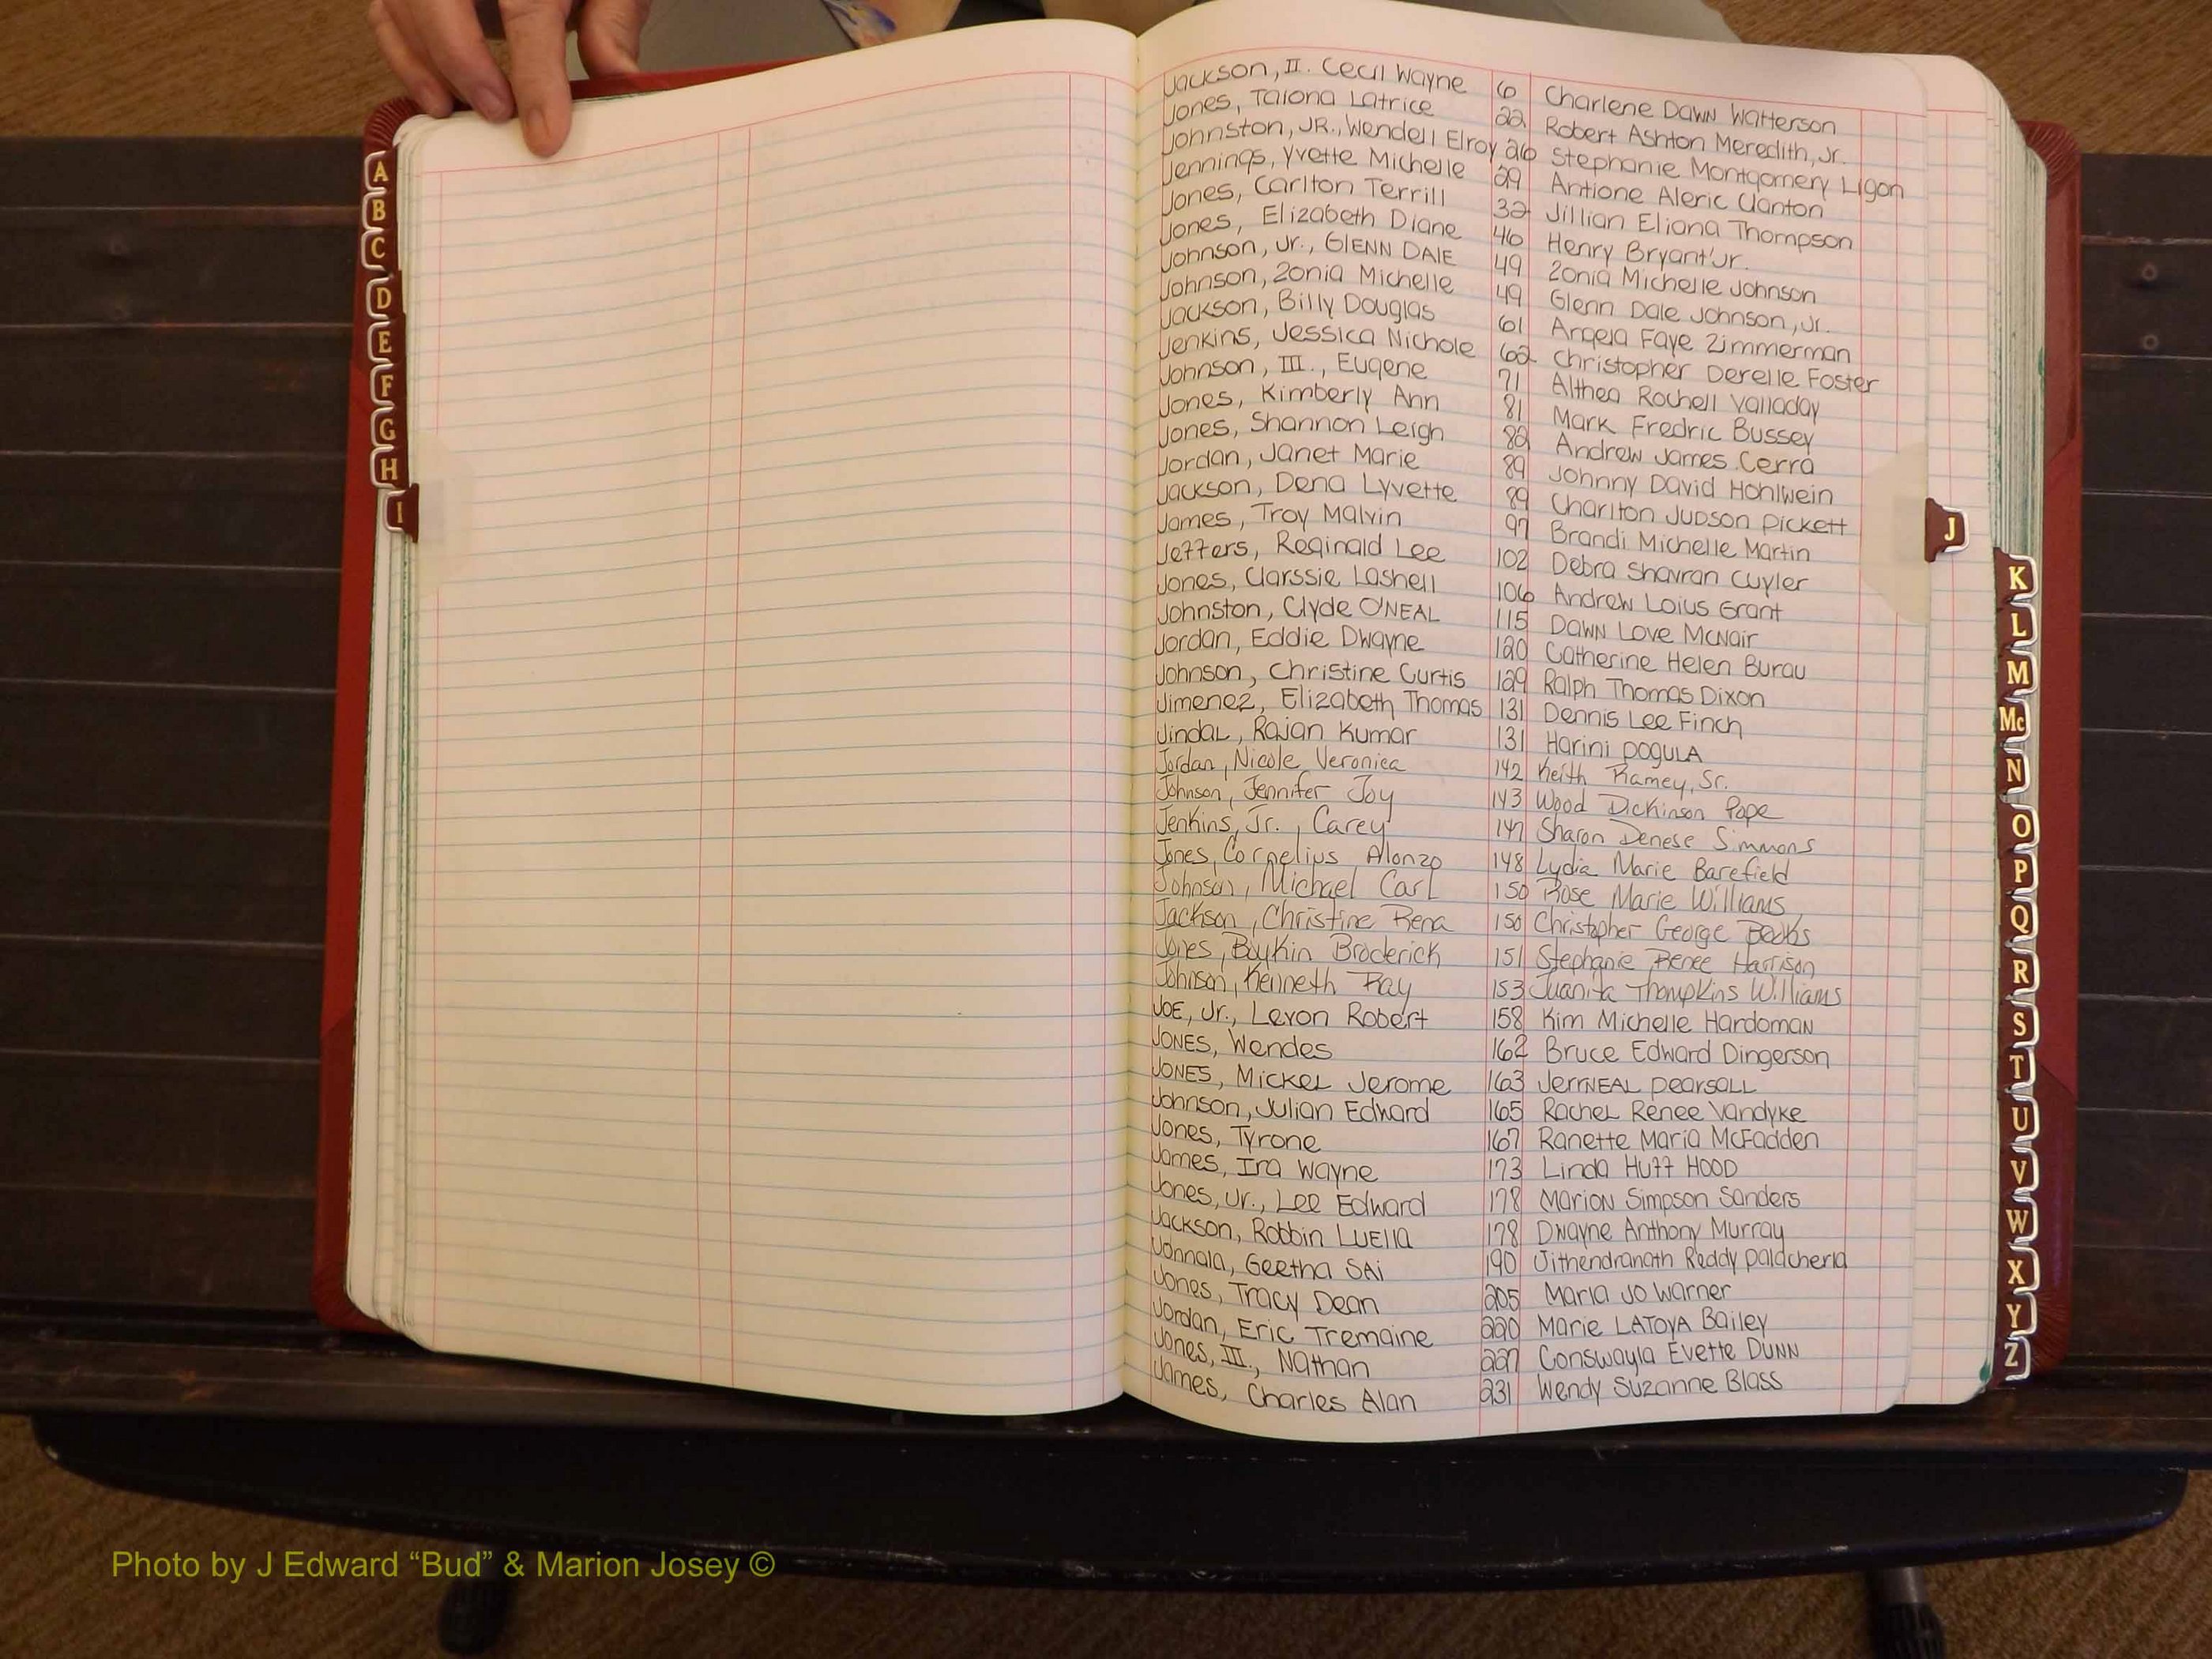 A
B
C
D
E
F
G
H
I
Jackson, II. Cecil Wayne 6 Charlene Dawn Watterson
Jones, Taiona Latrice 22 Robert Ashton Meredith, Jr.
Johnston, JR., Wendell Elroy, 26 Stephanie Montgomery Ligon
Jennings, Yvette Michelle 29 Antione Aleric Clanton
Jones, Carlton Terrill 32 Jillian Eliana Thompson
Jones, Elizabeth Diane 46 Henry Bryant Jr.
Johnson, Jr., GLENN DALE 49 Zonia Michelle Johnson
Johnson, Zonia Michelle 49 Glenn Dale Johnson, Jr.
Jackson, Billy Douglas 61 Angela Faye Zimmerman
Jenkins, Jessica Nichole 62 Christopher Derelle Foster
Johnson, III., Eugene 71 Althea Rochell Valladay
Jones, Kimberly Ann 81 Mark Fredric Bussey
Jones, Shannon Leigh 82 Andrew James Cerra
Jordan, Janet Marie 89 Johnny David Hohlwein
Jackson, Dena Lyvette 89 Charlton Judson Pickett
James, Troy Malvin 97 Brandi Michelle Martin
Jeffers, Reginald Lee 102 Debra Shavran Cuyler
Jones, Clarssie Lashell 106 Andrew Loius Grant
Johnston, Clyde O'NEAL 115 Dawn Love McNair
Jordan, Eddie Dwayne 120 Catherine Helen Burau
Johnson, Christine Curtis 129 Ralph Thomas Dixon
Jimenez, Elizabeth Thomas 131 Dennis Lee Finch
Jindal, Rajan Kumar 131 Harini Pogula
Jordan, Nicole Veronica 142 Keith Ramey, Sr.
Johnson, Jennifer Joy 143 Wood Dickinson Pope
Jenkins, Jr., Carey 147 Sharon Denese Simmons
Jones, Cornelius Alonzo 148 Lydia Marie Barefield
Johnson, Michael Carl 150 Rose Marie Williams
Jackson, Christine Rena 150 Christopher George
Jones, Boykin Broderick 151 Stephanie Renee Harrison
Johnson, Kenneth Ray 153 Juanita Thompkins Williams
JOE, Jr., Levon Robert 158 Kim Michelle Hardoman
JONES, Wendes 162 Bruce Edward Dingerson
JONES, Mickel Jerome 163 JerrNEAL Pearsall
Johnson, Julian Edward 165 Rachel Renee Vandyke
Jones, Tyrone 167 Ranette Maria McFadden
James, Ira Wayne 173 Linda Huff HOOD
Jones, Jr., Lee Edward 178 Marion Simpson Sanders
Jackson, Robbin LUElla 178 Dwayne Anthony Murray
Jannala, Geetha SAi 190 Jithendranath Reddy Paldcherla
Jones, Tracy Dean 205 Marla Jo Warner
Jordan, Eric Tremaine 220 Marie LATOYA Bailey
Jones, III., Nathan 227 Conswayla Evette DUNN
James, Charles Alan 231 Wendy Suzanne Blass
J
K
L
M
Mc
N
O
P
Q
R
S
T
U
V
W
X
Y
Z
Photo by J Edward “Bud” & Marion Josey ©